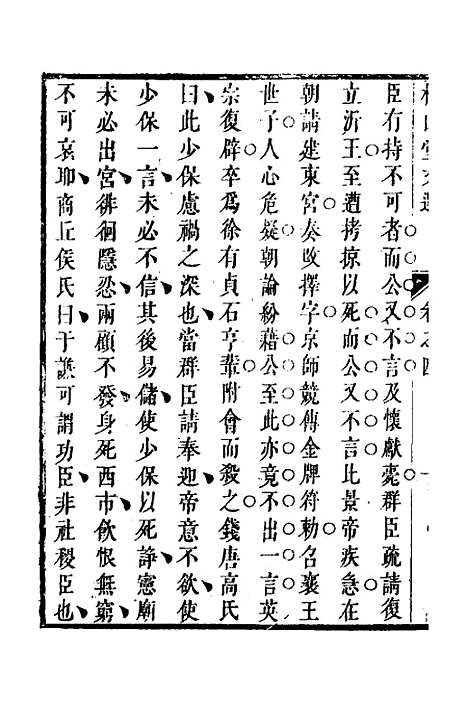 臣有持不可者而公又不言及懷獻薨群臣疏請復
立沂王至遭拷掠以死而公又不言此景帝疾急在
朝請建東宮奏改擇字京師競傳金牌符勅召襄王
世子人心危疑朝論紛藉公至此亦竟不出一言英
宗復辟卒爲徐有貞石亨輩附會而殺之錢唐高氏
曰此少保慮禍之深也當群臣請奉迎帝意不欲使
少保一言未必不信其後易儲使少保以死諍憲廟
未必出宮徘徊隱忍兩顧不發身死西市飲恨無窮
不可哀耶商丘侯氏曰于謙可謂功臣非社稷臣也